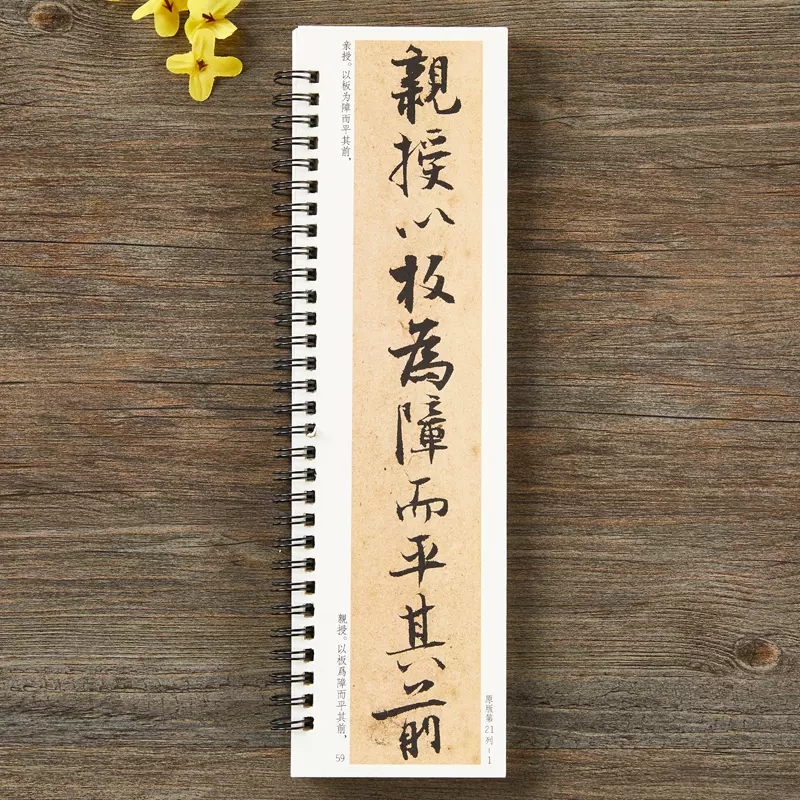 原版第21列-1
親授以板為障而平其前
亲授。以板为障而平其前，
親授。以板爲障而平其前，
59